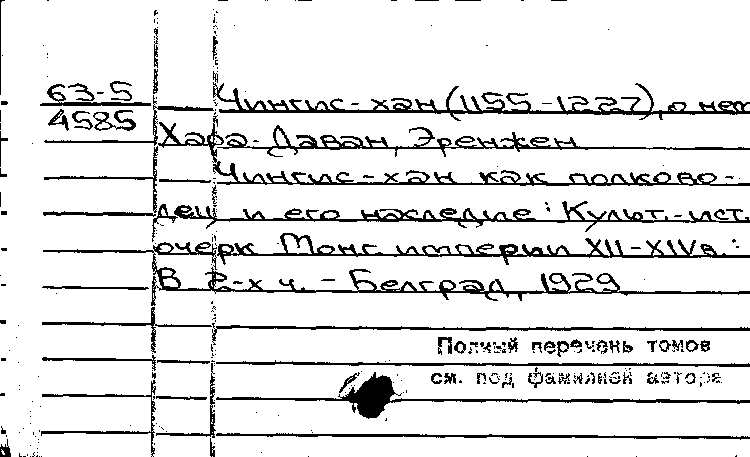 63-5
4585
Чингис-хан (1155-1227), о нем
Хара-Даван, Эренжен
Чингис-хан как полково-
дец и его наследие: Культ.-ист.
очерк Монг. империи XII-XIVв.:
В 2-х ч. - Белград, 1929.
Полный перечень томов
см. под фамилией автора